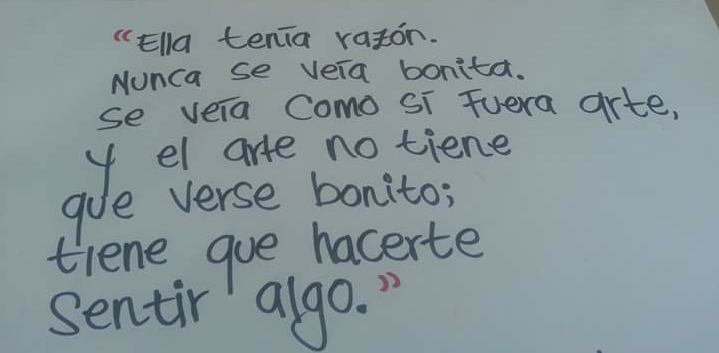 “Ella tenía razón.
Nunca se veía bonita.
se veía como sí fuera arte,
y el arte no tiene
que verse bonito;
tiene que hacerte
sentir algo.”